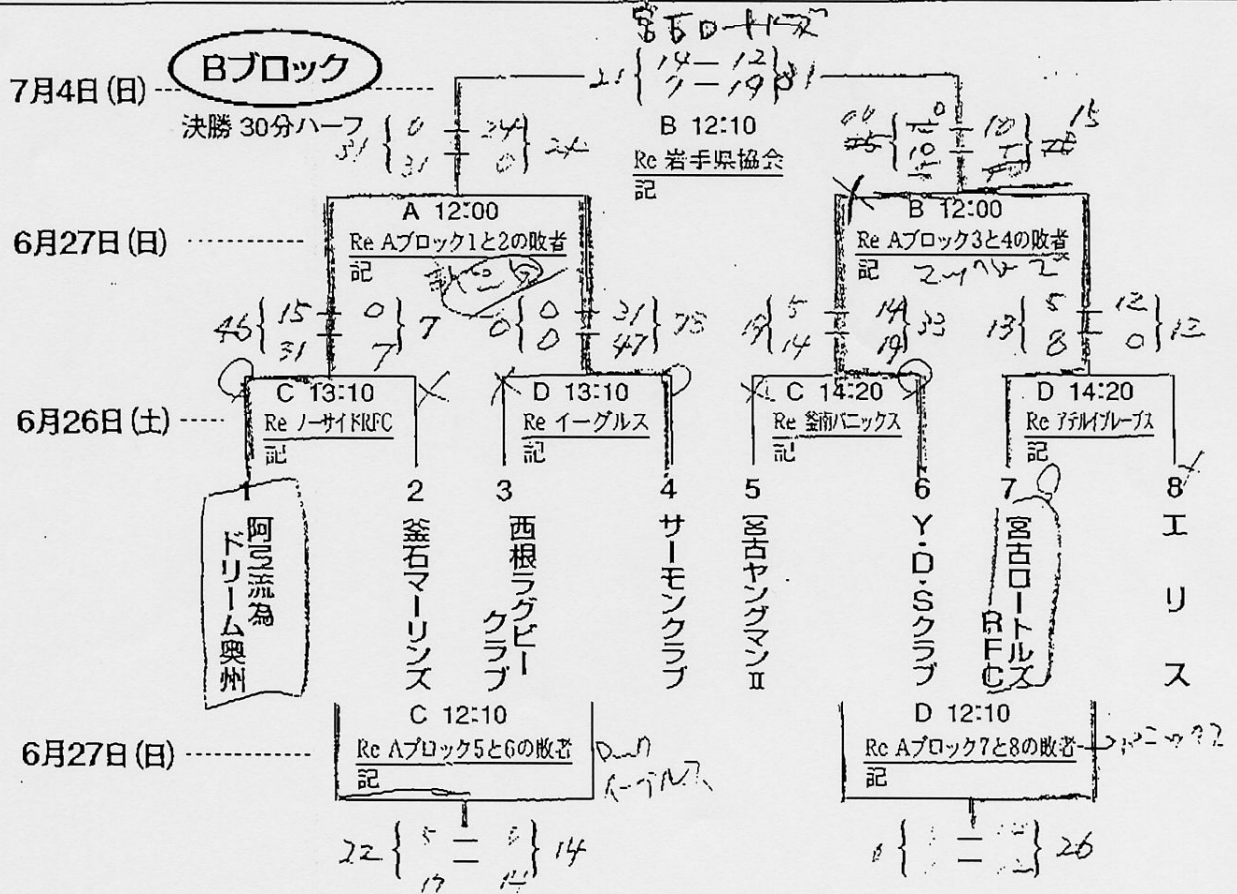 宮古ロートルズ
Bブロック
7月4日(日)
21 { 14 — 12 } 31
7 — 19
決勝 30分ハーフ
B 12:10
Re 岩手県協会
記
31 { 0 — 24 } 24
31 — 0
15
6月27日(日)
A 12:00
Re Aブロック1と2の敗者
記
B 12:00
Re Aブロック3と4の敗者
記
46 { 15 — 0 } 7
31 — 7
0 { 0 — 31 } 78
0 — 47
19 { 5 — 14 } 33
14 — 19
13 { 5 — 12 } 12
8 — 0
6月26日(土)
C 13:10
Re ノーサイドRFC
記
D 13:10
Re イーグルス
記
C 14:20
Re 釜南バニックス
記
D 14:20
Re アテルイブレーブス
記
1 阿弖流為ドリーム奥州
2 釜石マーリンズ
3 西根ラグビークラブ
4 サーモンクラブ
5 宮古ヤングマンⅡ
6 Y・D・Sクラブ
7 宮古ロートルズRFC
8 エリス
6月27日(日)
C 12:10
Re Aブロック5と6の敗者
記
イーグルス
D 12:10
Re Aブロック7と8の敗者
記
22 { 5 — } 14
17 — 14
26